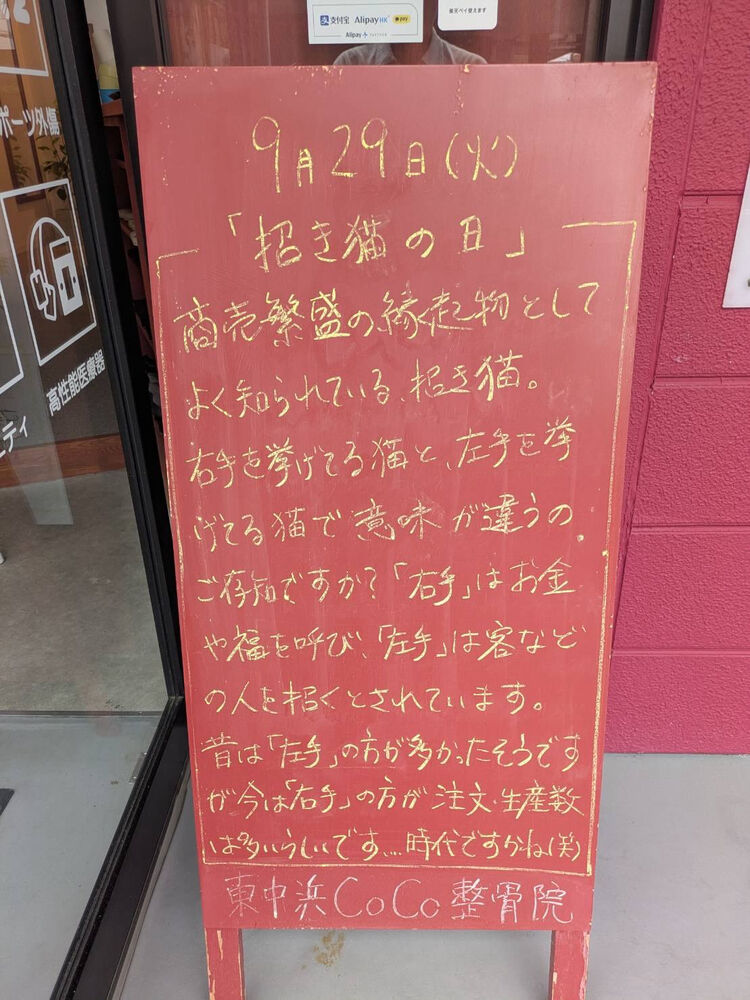 支付宝 AlipayHK pay
Alipay+ PARTNER
楽天ペイ使えます
ポーツ外傷
高性能医療器
ティ
9月29日(火)
「招き猫の日」
商売繁盛の縁起物として
よく知られている、招き猫。
右手を挙げてる猫と、左手を挙
げてる猫で意味が違うの、
ご存知ですか?「右手」はお金
や福を呼び、「左手」は客など
の人を招くとされています。
昔は「左手」の方が多かったそうです
が今は「右手」の方が注文・生産数
は多いらしいです…時代ですかね(笑)
東中浜CoCo整骨院